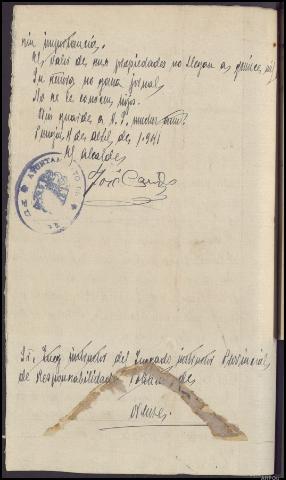 sin importancia.
El valor de sus propiedades no llegan a quince mil
Su señora no gana jornal
No se le conocen hijos.
Dios guarde a V. S. muchos años.
de Abril de 1.941
El Alcalde
José
AYUNTAMIENTO
Sr. Juez instructor del Juzgado instructor Provincial
de Responsabilidades Políticas de
Orense.